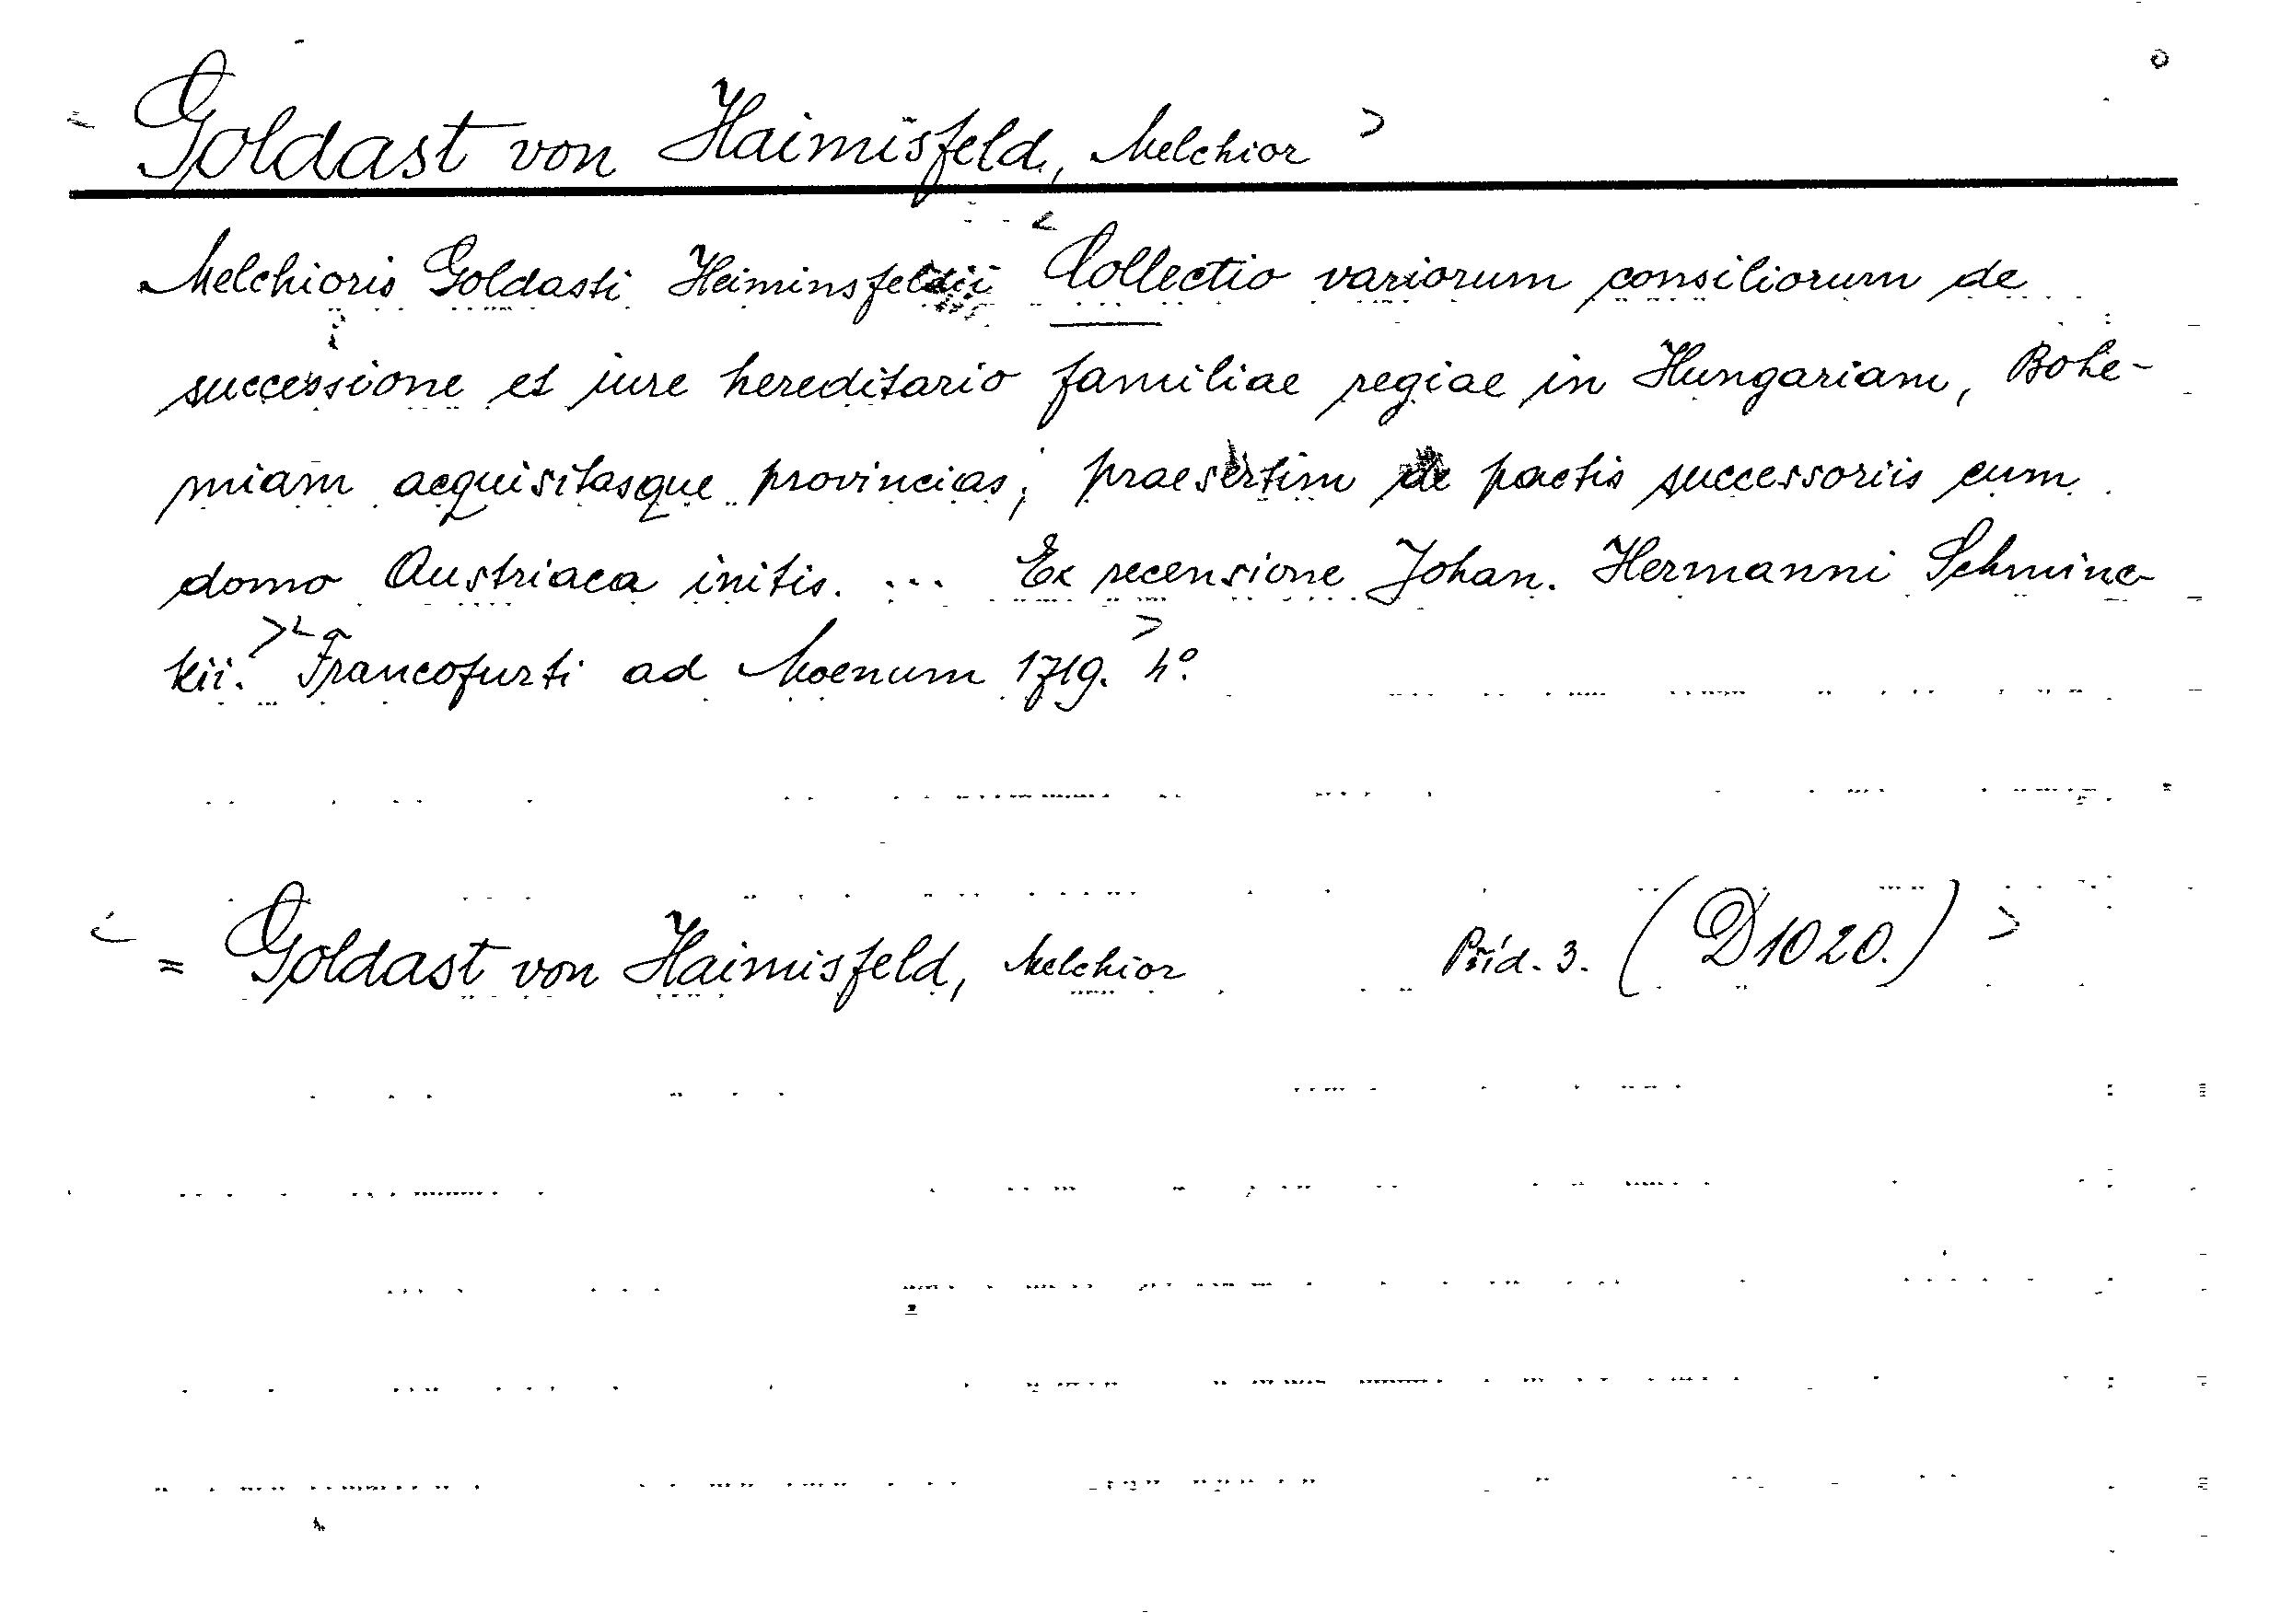 Goldast von Haimisfeld, Melchior >
Melchioris Goldasti Heiminsfeldii < Collectio variorum consiliorum de
successione et iure hereditario familiae regiae in Hungariam, Bohe-
miam acquisitasque provincias; praesertim de pactis successoriis cum
domo Austriaca initis. ... Ex recensione Johan. Hermanni Schminc-
kii. >< Francofurti ad Moenum 1719. > 4°.
< = Goldast von Haimisfeld, Melchior Příd. 3. (D1020.) >